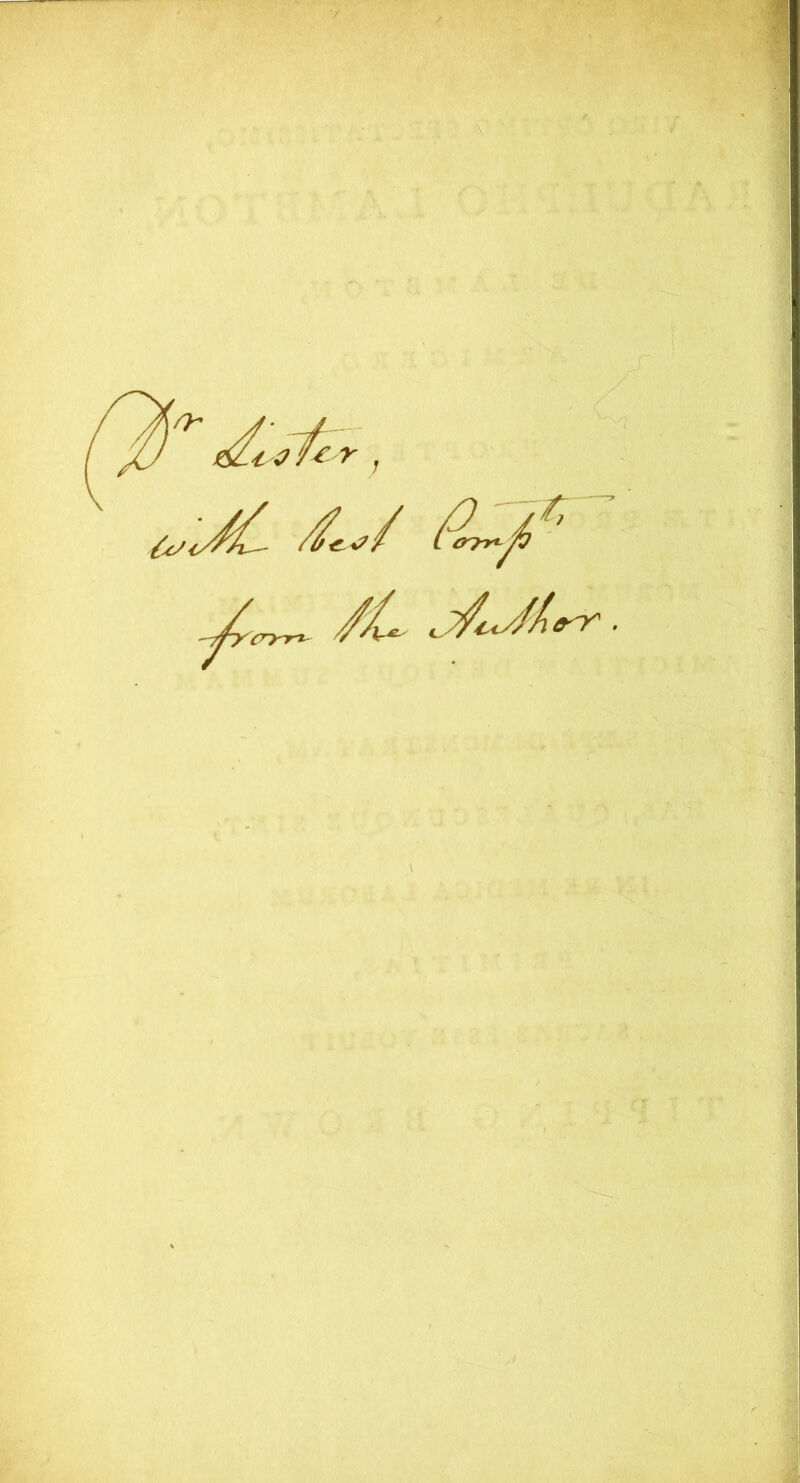 Dr Lister,
with best Compts
from the Author.